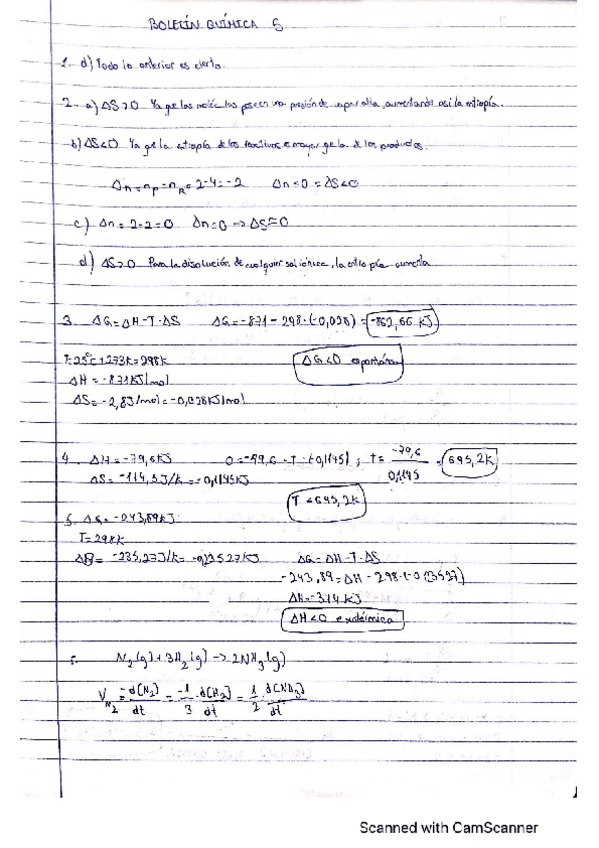 BOLETÍN QUÍMICA 5
1- d) Todo lo anterior es cierto.
2- a) ΔS>0 Ya que las moléculas poseen una presión de vapor alta, aumentando así la entropía.
b) ΔS<0 Ya que la entropía de los reactivos es mayor que la de los productos.
Δn = nP - nR = 2-4 = -2 Δn<0 = ΔS<0
c) Δn = 2-2 = 0 Δn=0 → ΔS≃0
d) ΔS>0 Para la disolución de cualquier sal iónica, la entropía aumenta
3. ΔG=ΔH-T·ΔS ΔG=-871-298·(-0,028) = -862,66 KJ
T=25°C+273K=298K ΔG<0 espontánea
ΔH=-871KJ/mol
ΔS=-2,8J/mol=-0,028KJ/mol
4. ΔH=-79,6KJ 0=-79,6-T·(-0,1145); T= -79,6/0,1145 = 695,2K
ΔS=-114,5J/K=-0,1145KJ
T<695,2K
5. ΔG=-243,89KJ
T=298K
-235,27J/K= KJ ΔG=ΔH-T·ΔS
-243,89=ΔH-298·
ΔH=-314KJ
ΔH<0 exotérmica
N2(g)+3H2(g)→2NH3(g)
V N2 = d[N2]/dt = -1/3 · d[H2]/dt = 1/2 · d[NH3]/dt
Scanned with CamScanner